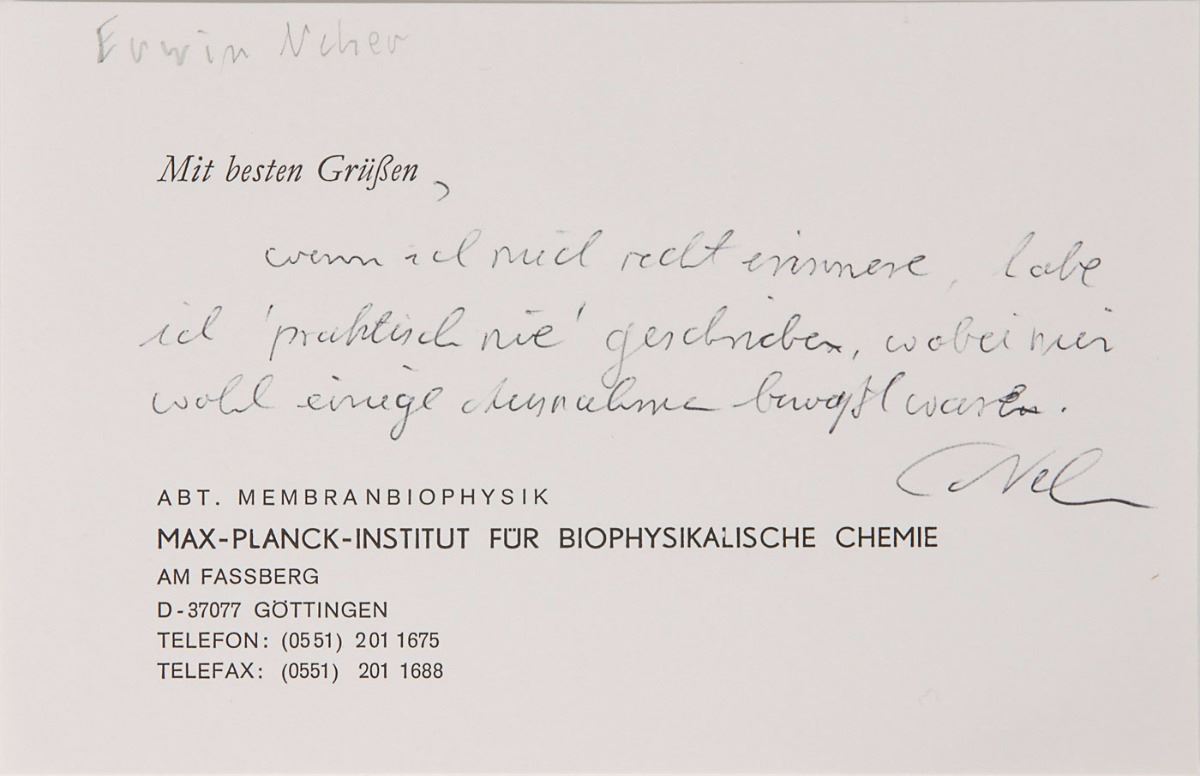 Erwin Neher
Mit besten Grüßen,
wenn ich mich recht erinnere, habe
ich 'praktisch nie' geschrieben, wobei mir
wohl einige Ausnahmen bewußt waren.
ABT. MEMBRANBIOPHYSIK
MAX-PLANCK-INSTITUT FÜR BIOPHYSIKALISCHE CHEMIE
AM FASSBERG
D-37077 GÖTTINGEN
TELEFON: (0551) 201 1675
TELEFAX: (0551) 201 1688